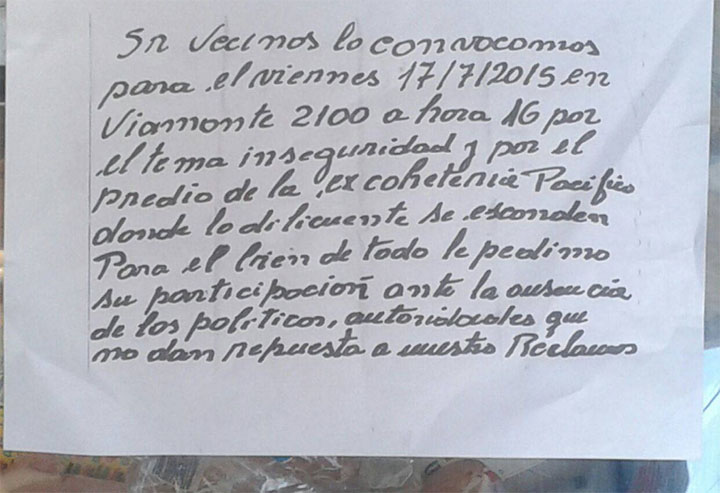 Sr Vecinos lo convocomos
para el viernes 17/7/2015 en
Viamonte 2100 a hora 16 por
el tema inseguridad y por el
predio de la ex coheteria Pacifico
donde lo dilicuente se esconden
Para el bien de todo le pedimo
su participación ante la ausencia
de los politicos, autoridades que
no dan repuesta a nuestro Reclamos